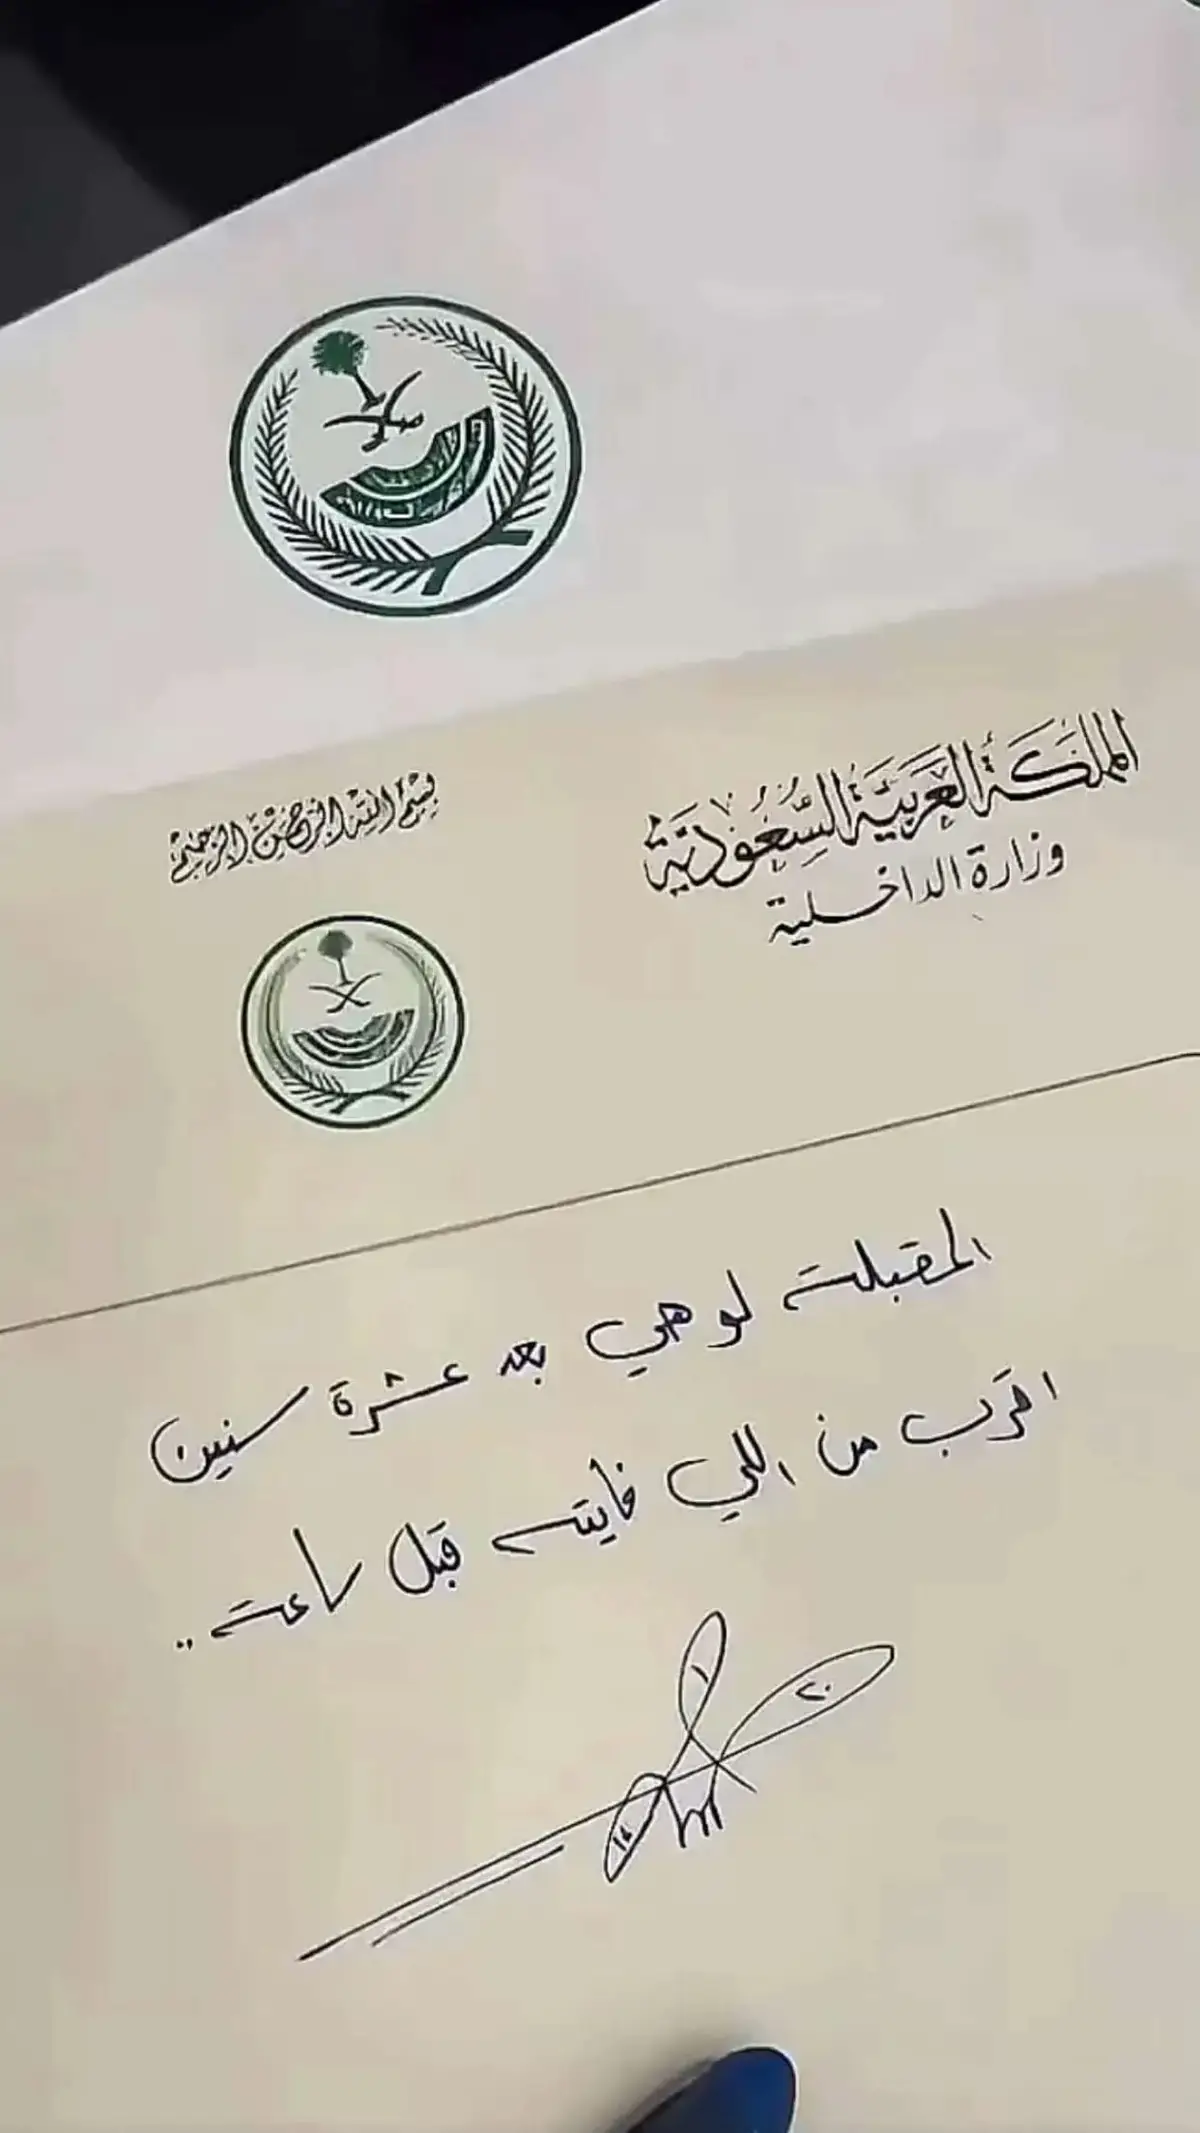 المملكة العربية السعودية
وزارة الداخلية
بسم الله الرحمن الرحيم
المقبلة لو هي بعد عشرة سنين
اقرب من اللي فايته قبل ساعة ..
١
٢٠